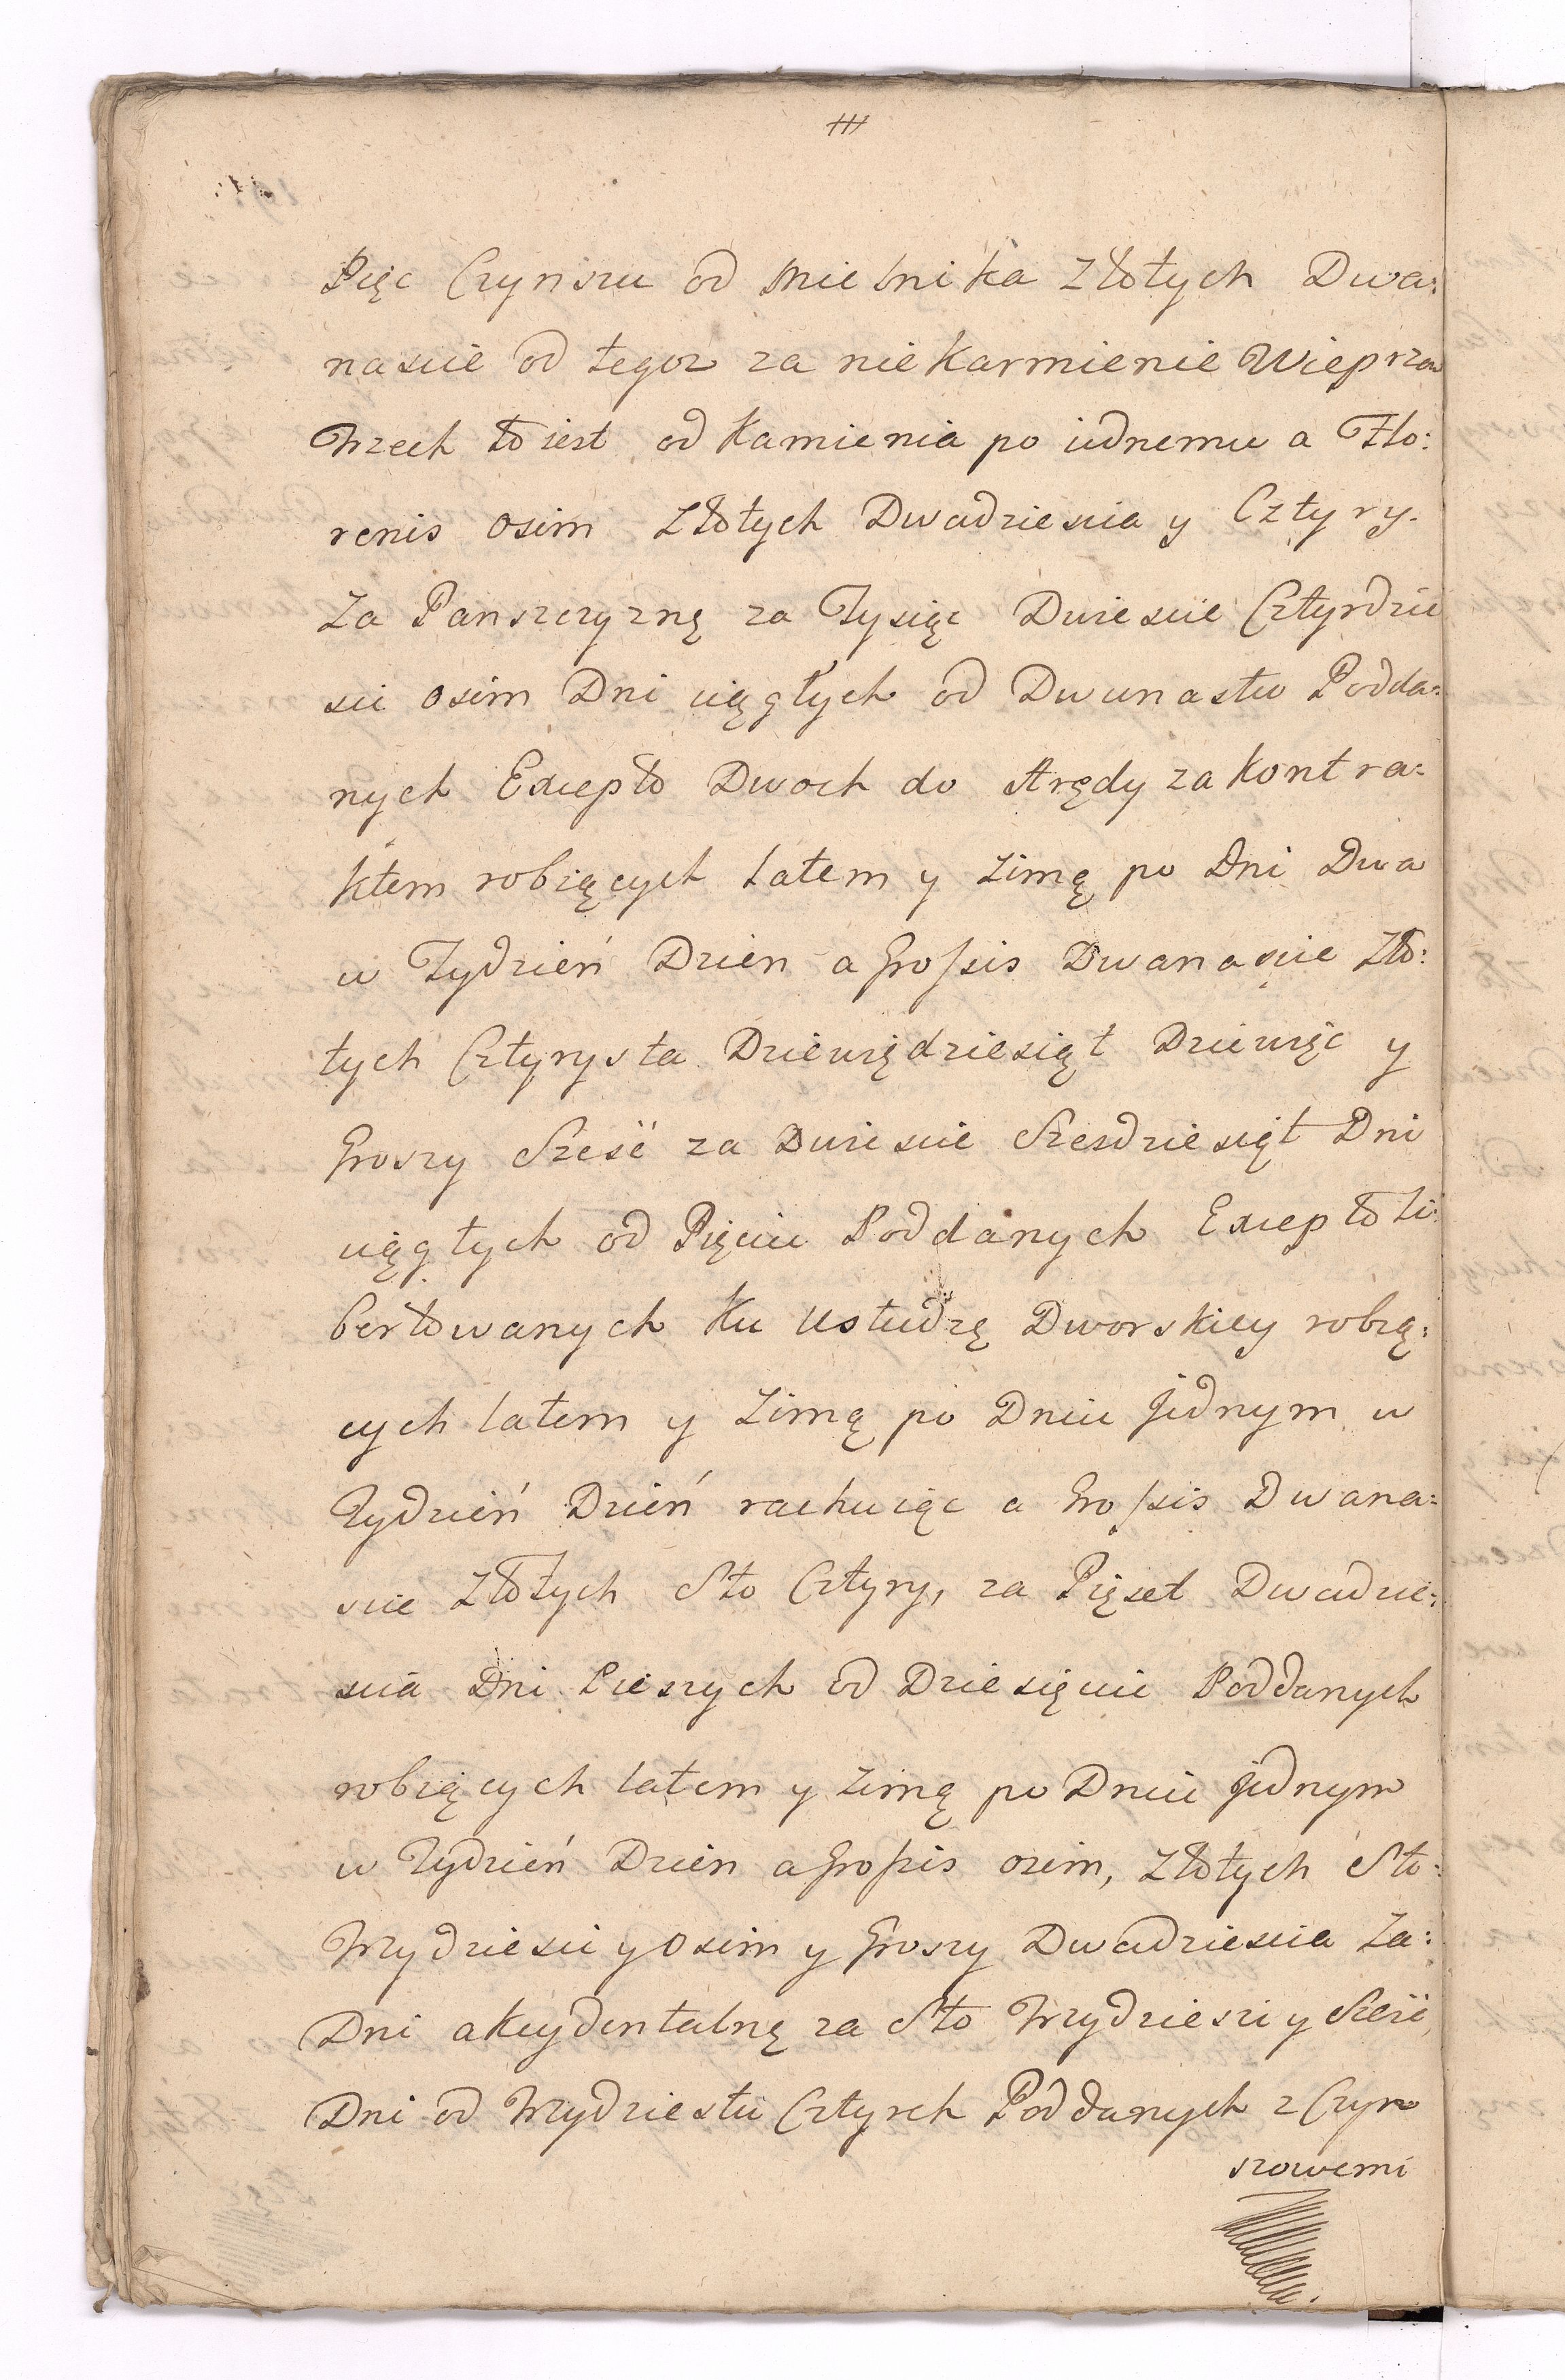 Pięc Czynszu od Mielnika Złotych Dwa:
nascie od tegoz za niekarmienie Wieprzow
Trzech to iest od Kamienia po iednemu a Flo:
renis Osim Złotych Dwadziescia y Cztyry.
Za Panszczyznę za Tysiąc Dwiescie Cztyrdzie
sci Osim Dni ciągłych od Dwunastu Podda:
nych Excepto Dwoch do Arędy za Kontra:
ktem robiących latem y zimą po Dni Dwa
w Tydzień Dzien a Grossis Dwanascie Zło:
tych Cztyrysta Dziewiędziesiąt Dziewięc y
Groszy Sześć za Dwiescie Szesdziesiąt Dni
ciągłych od Pięciu Poddanych Excepto li:
bertowanych Ku Usłudzę Dworskiey robią:
cych latem y Zimą po Dniu Jednym w
Tydzień Dzień rachuiąc a Grossis Dwana:
scie Złotych Sto Cztyry, za Pięset Dwadzie:
scia Dni Pieszych od Dziesięciu Poddanych
robiących latem y zimą po Dniu Jednym
w Tydzień Dzien a Grossis osim, Złotych Sto:
Trzydziesci y Osim y Groszy Dwadziescia Za:
Dni akcydentalną za Sto Trzydziesci y Sześć
Dni od Trzydziestu Cztyrch Poddanych z Czyn
szowemi